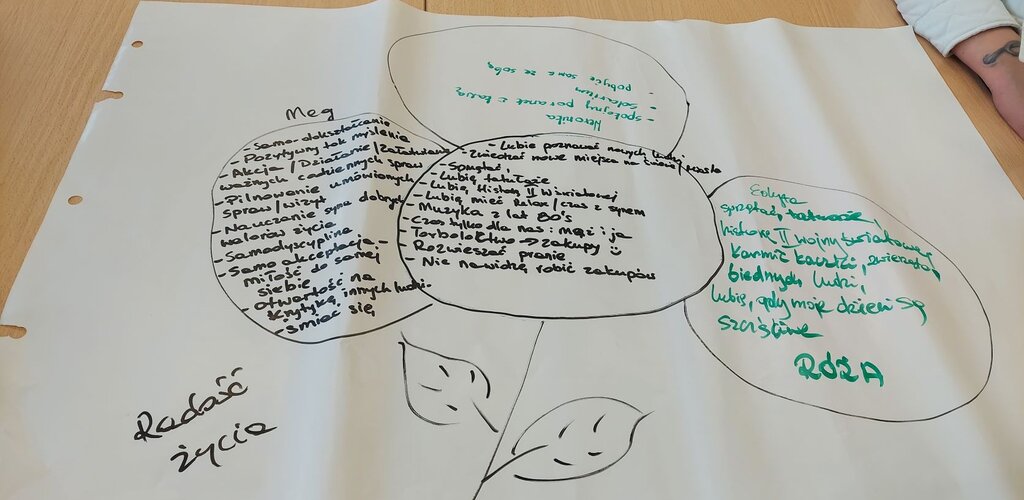 Weronika
- spokojny poranek z kawą
- solarium
- pobycie sama ze sobą
Meg
- Samo dokształcanie
- Pozytywny tok myślenia
- Akcja / Działanie / Załatwianie
ważnych codziennych spraw
- Pilnowanie umówionych
spraw / wizyt
- Nauczanie syna dobrych
walorów życia
- Samodyscyplina
- Samo akceptacja -
miłość do samej
siebie
- otwartość na
krytykę innych ludzi
- śmiać się
- Lubię poznawać nowych ludzi
- Zwiedzać nowe miejsca na świecie /
- Sprzątać,
- Lubię tatuaże
- Lubię Historię II W światowej
- Lubię mieć Relax / czas z synem
- Muzyka z lat 80's
- Czas tylko dla nas: mąż i ja
- Torboloctwo → zakupy
- Rozwieszać pranie
- Nie nawidzę robić zakupów
Edyta
sprzątać, tatuaże,
historię II wojny światowej,
karmić kaczki, zwierzęta,
biednych ludzi,
lubię, gdy moje dzieci są
szczęśliwe
RÓŻA
Radość
życia